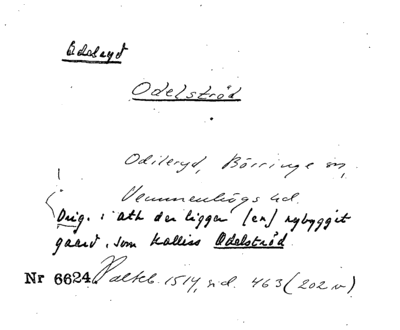 Odelsryd
Odelströd
Odileryd, Börringe sn,
Vemmenhögs hd.
Orig.: ath der ligger [en] nybygget
gaard, som kalliss Odelströd.
Nr 6624 Palteb. 1514, sid. 463 (202 v)